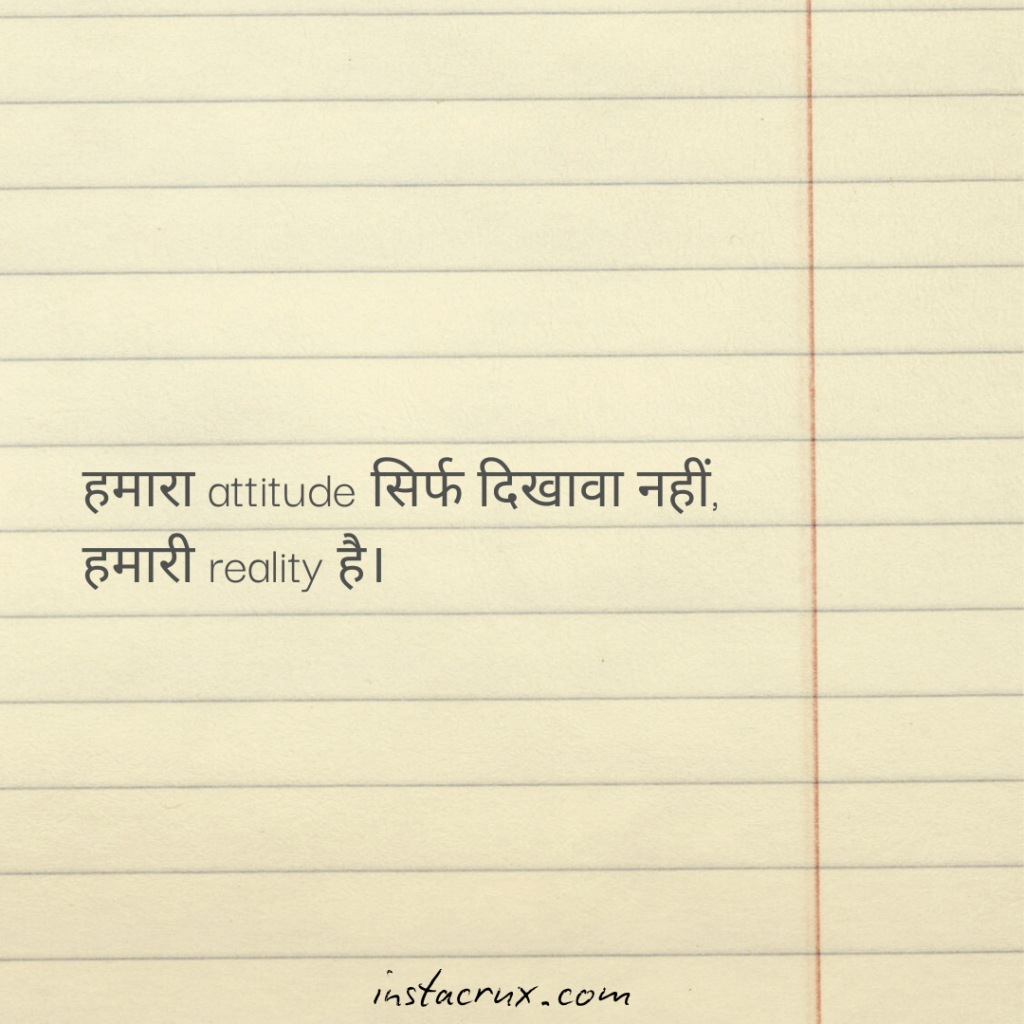 हमारा attitude सिर्फ दिखावा नहीं,
हमारी reality है।
instacrux.com